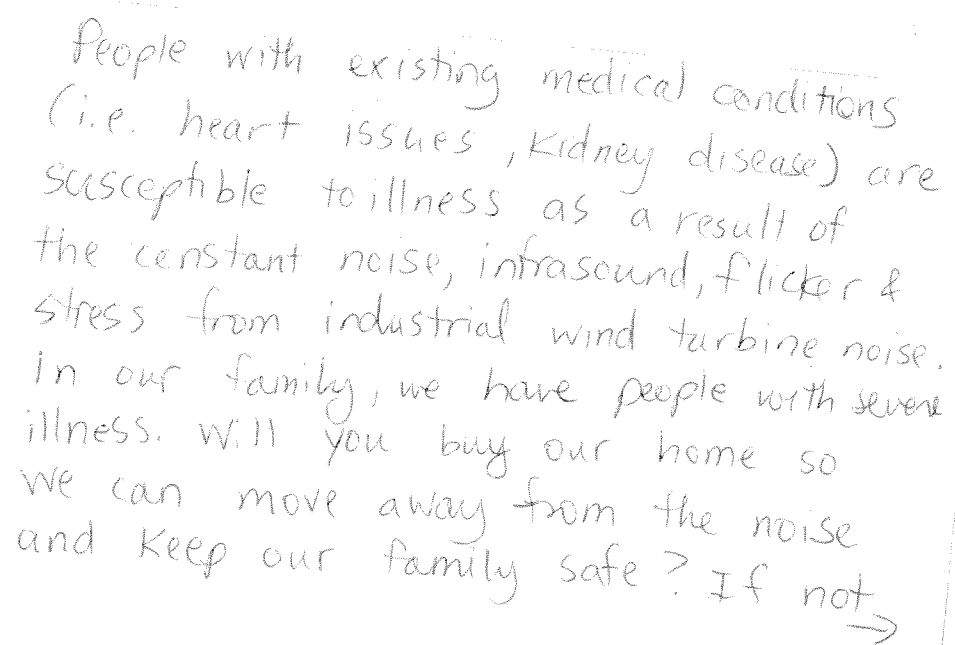 People with existing medical conditions
(i.e. heart issues, kidney disease) are
susceptible to illness as a result of
the constant noise, infrasound, flicker &
stress from industrial wind turbine noise.
In our family, we have people with severe
illness. Will you buy our home so
we can move away from the noise
and keep our family safe? If not
→